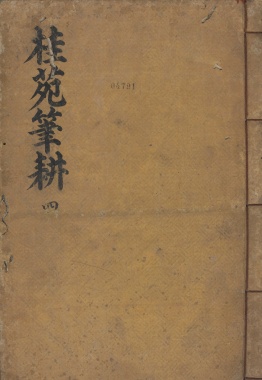 桂苑筆耕
四
04791